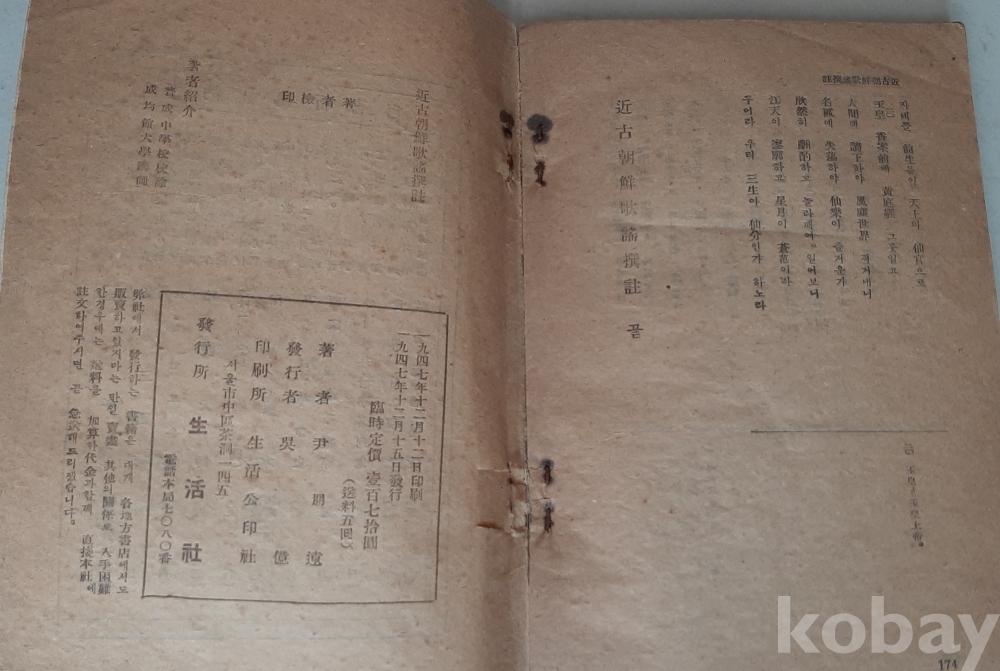 近古朝鮮歌謠撰註
天上의 仙官으로
玉皇 香案前에 黃庭經
人間에 謫下하야 風塵世界
하야 仙樂이
欣然히
江天이 寥廓하고 星月이 蒼茫이라
두어라 우리 三生이 仙分인가 하노라
近古朝鮮歌謠撰註 끝
玉皇 玉皇上帝。
174
近古朝鮮歌謠撰註
著者檢印
著者紹介
成均館大學講師
一九四七年十二月十二日印刷
一九四七年十二月十五日發行
臨時定價 壹百七拾圓
(送料五圓)
著者 尹
發行者 吳 億
印刷所 生活公印社
서울市中區茶洞一四五
發行所 生活社
電話本局七〇八〇番
弊社에서 發行하는 書籍은 대개 各地方書店에서도
販賣하고있지마는 만일 賣盡 其他의關係로 入手困難
한경우에는 送料를 加算하야代金과함께 直接本社에
註文하여주시면 곧 急送해드리겠습니다。
kobay